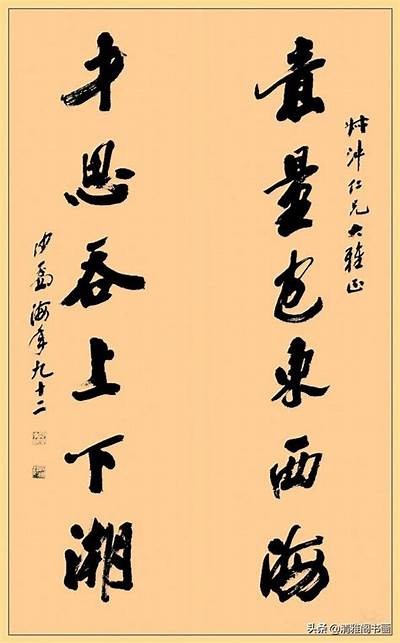 仁兄大雅正
意量包東西海
才思吞上下潮
沙孟海年九十二
头条@清雅阁书画